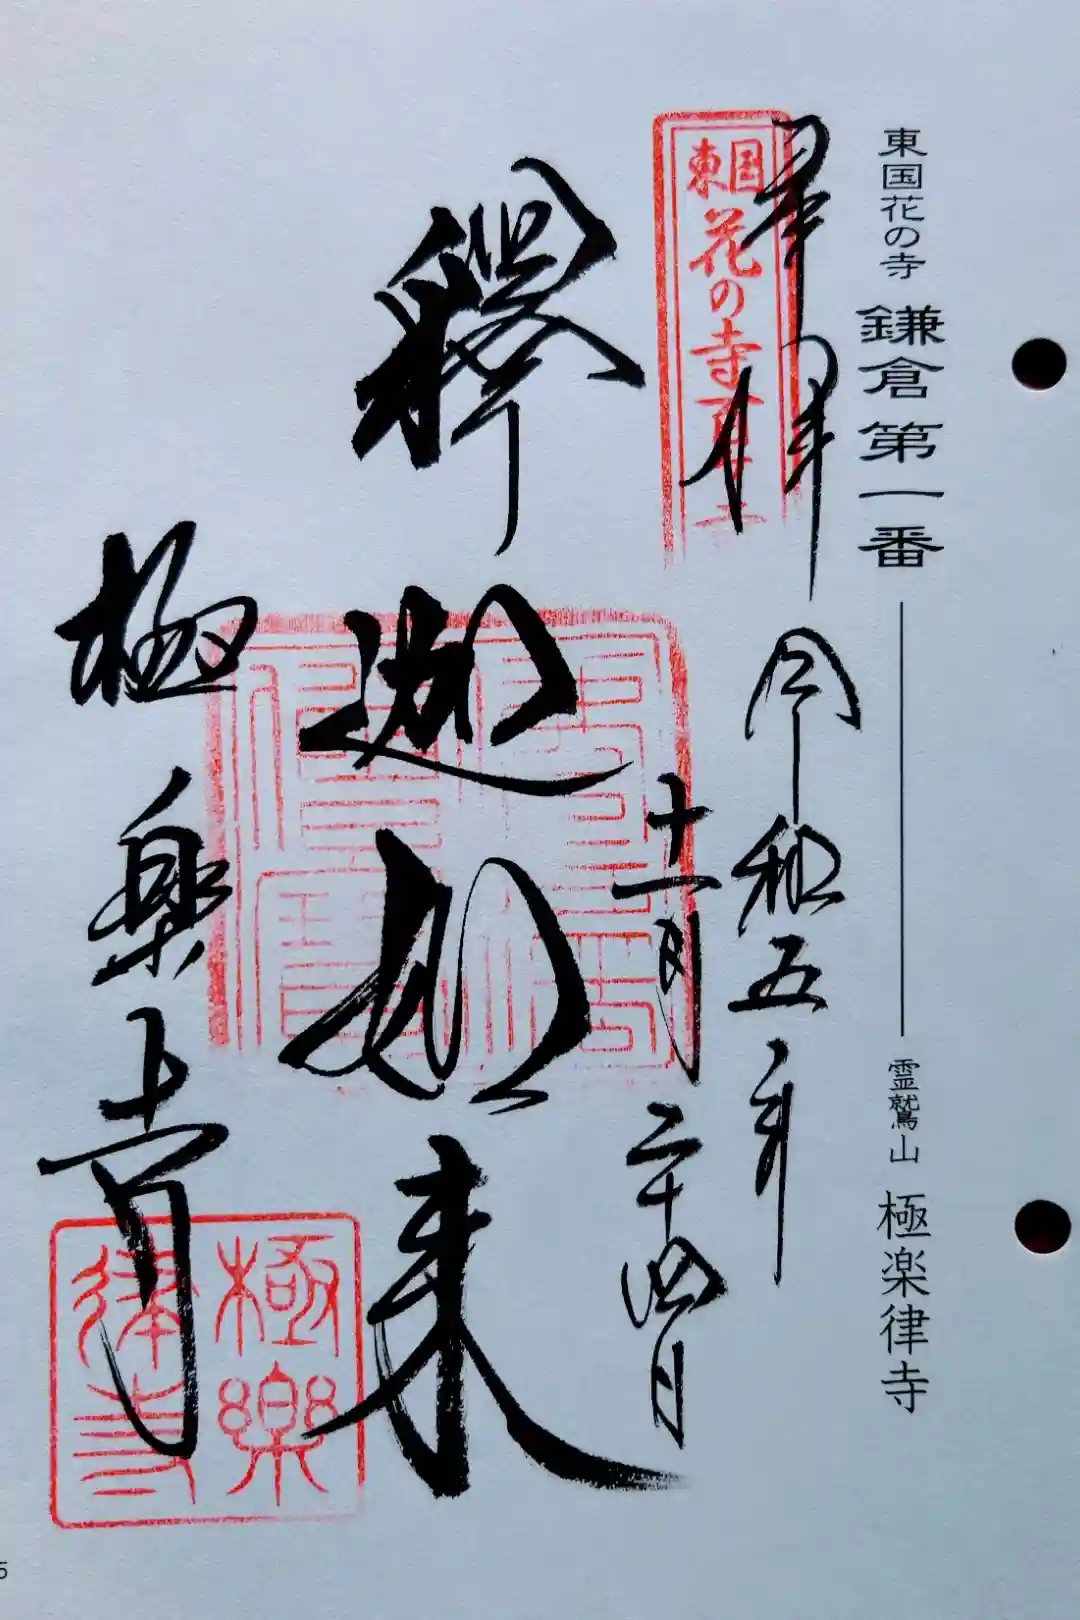 東国花の寺 鎌倉第一番 霊鷲山 極楽律寺
東国花の寺百ヶ
奉拝 令和五年
十一月二十四日
釋迦如来
極楽寺
極樂律寺
5